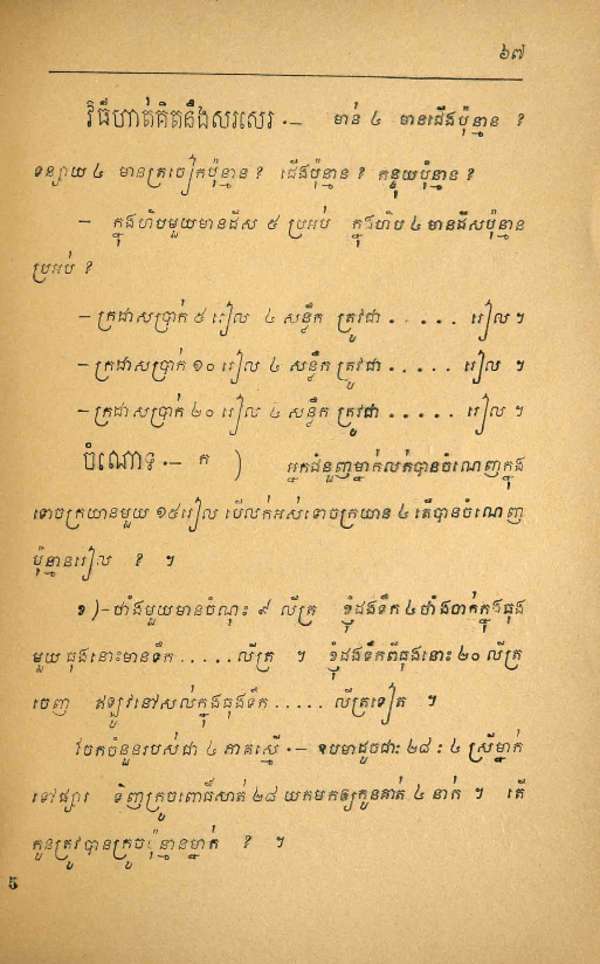 ៦៧
វិធីហាត់គិតនឹងសរសេរ ·— មាន់ ៤ មានជើងប៉ុន្មាន ?
ទន្សាយ ៤ មានត្រចៀកប៉ុន្មាន ? ជើងប៉ុន្មាន ? កន្ទុយប៉ុន្មាន ?
— ក្នុងហិបមួយមានដីស ៥ ប្រអប់ ក្នុងហិប ៤ មានដីសប៉ុន្មាន
ប្រអប់ ?
— ក្រដាសប្រាក់ ៥ រៀល ៤ សន្លឹក ត្រូវជា . . . . . រៀល ។
— ក្រដាសប្រាក់ ១០ រៀល ៤ សន្លឹក ត្រូវជា . . . . . រៀល ។
— ក្រដាសប្រាក់ ២០ រៀល ៤ សន្លឹក ត្រូវជា . . . . . រៀល ។
ចំណោទ ·— ក ) អ្នកជំនួញម្នាក់លក់បានចំណេញក្នុង
ទោចក្រយានមួយ ១៥រៀល បើលក់អស់ទោចក្រយាន ៤ តើបានចំណេញ
ប៉ុន្មានរៀល ? ។
ខ )—ថាំងមួយមានចំណុះ ៩ លីត្រ ខ្ញុំដងទឹក ៤ ថាំងចាក់ក្នុងធុង
មួយ ធុងនោះមានទឹក . . . . . លីត្រ ។ ខ្ញុំដងទឹកពីធុងនោះ ២០ លីត្រ
ចេញ ឥឡូវនៅសល់ក្នុងធុងទឹក . . . . . លីត្រទៀត ។
ចែកចំនួនរបស់ជា ៤ ភាគស្មើ ·— ឧបមាដូចជា: ២៨ : ៤ ស្រីម្នាក់
ទៅផ្សារ ទិញក្រូចពោធិ៍សាត់ ២៨ យកមកឲ្យកូនគាត់ ៤ នាក់ ។ តើ
កូនត្រូវបានក្រូចប៉ុន្មានម្នាក់ ? ។
5